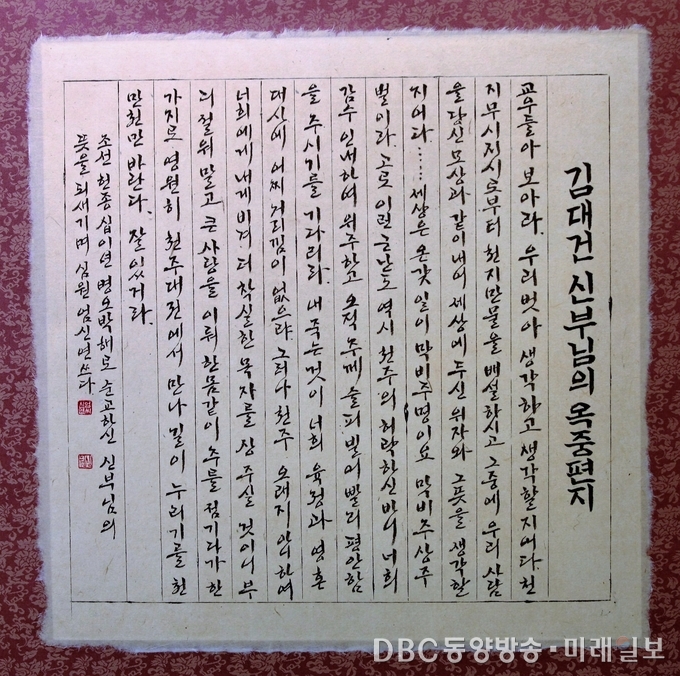 김대건 신부님의 옥중편지
교우들아 보아라. 우리 벗아 생각하고 생각할 지어다. 천
지 무시지시로부터 천지만물을 배설하시고 그중에 우리 사람
을 당신 모상과 같이 내어 세상에 두신 위자와 그 뜻을 생각할
지어다. …… 세상은 온갖 일이 막비주명이요 막비주상주
벌이라. 고로 이런 군난도 역시 천주의 허락하신 바니 너희
감수 인내하여 위주하고 오직 주께 슬피 빌어 빨리 평안함
을 주시기를 기다리라. 내 죽는 것이 너희 육정과 영혼
대사에 어찌 거리낌이 없으랴. 그러나 천주 오래지 아니하여
너희에게 내게 비겨 더 착실한 목자를 상 주실 것이니 부
디 설워 말고 큰 사랑을 이뤄 한몸같이 주를 섬기다가 한
가지로 영원히 천주대전에서 만나 길이 누리기를 천
만천만 바란다. 잘 있거라.
조선 헌종 십이년 병오박해로 순교하신 신부님의
뜻을 되새기며 심원 엄신연 쓰다
DBC동양방송·미래일보